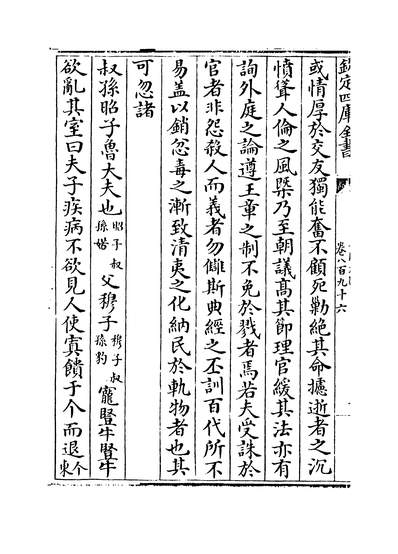 欽定四庫全書
卷八百九十六
或情厚於交友獨能奮不顧死勦絶其命攄逝者之沉
憤聳人倫之風槩乃至朝議髙其節理官緩其法亦有
詢外庭之論遵王章之制不免於戮者焉若夫受誅於
官者非怨殺人而義者勿讎斯典經之丕訓百代所不
易盖以銷忿毒之漸致清夷之化納民於軌物者也其
可忽諸
叔孫昭子魯大夫也昭子叔孫婼父穆子穆子叔孫豹寵豎牛豎牛
欲亂其室曰夫子疾病不欲見人使寘饋于个而退个東